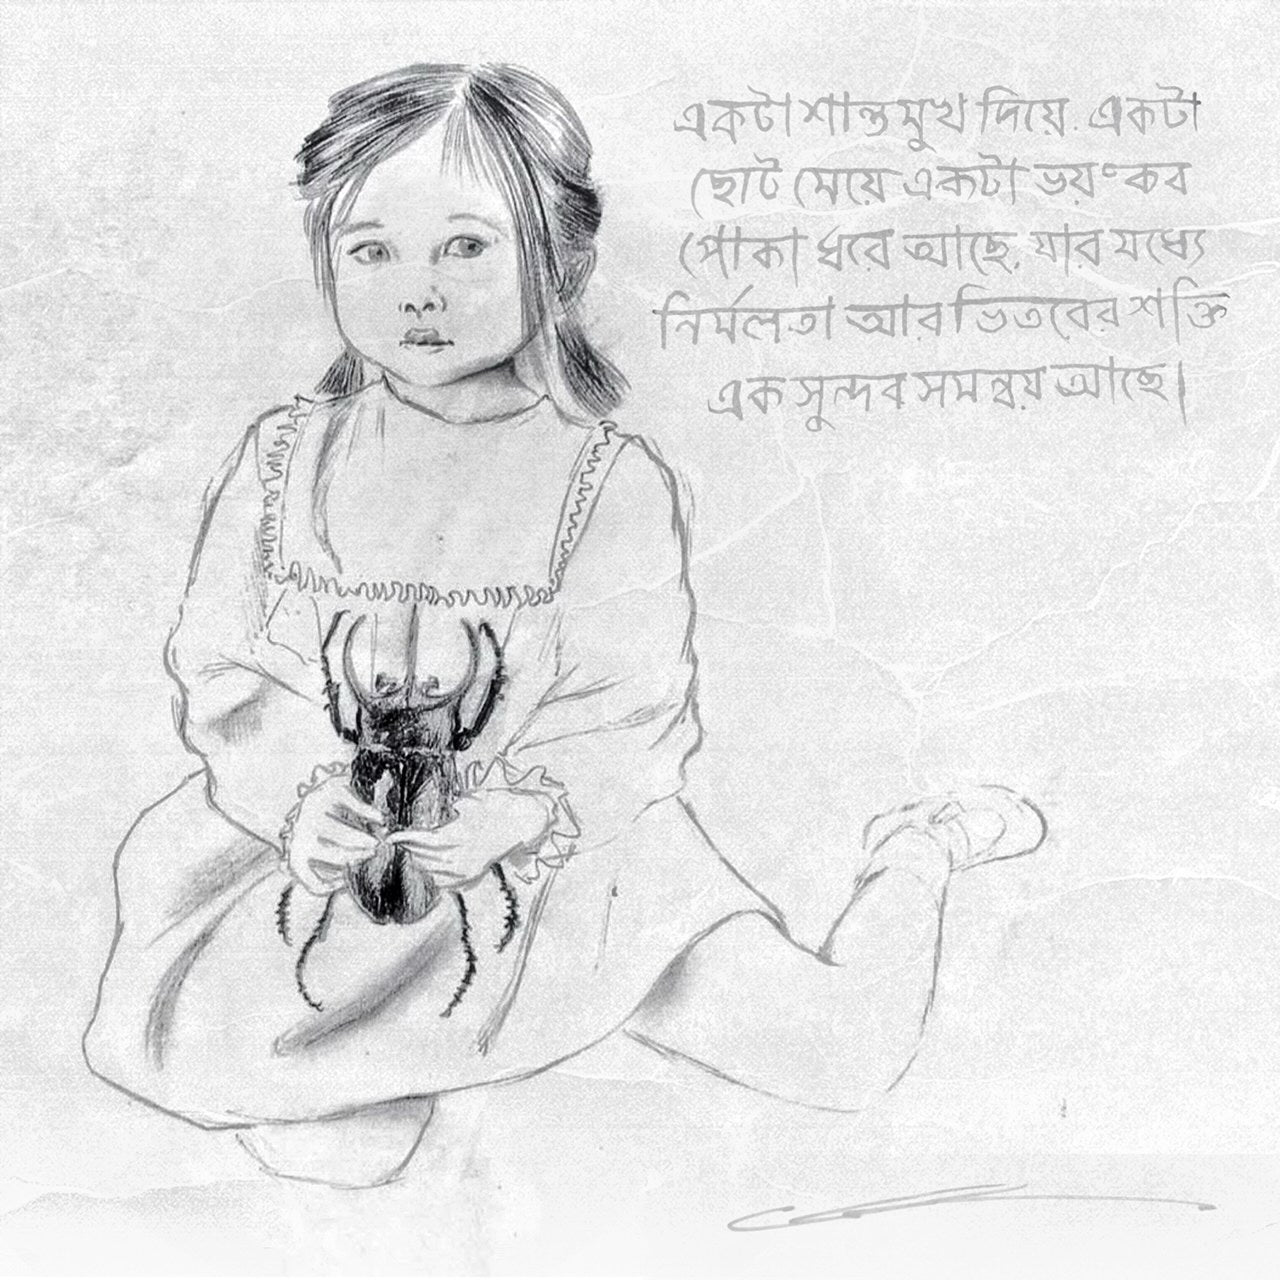 একটা শান্ত মুখ দিয়ে. একটা
ছোট মেয়ে একটা ভয়ংকব
পোকা ধরে আছে, যার মধ্যে
নির্মলতা আর ভিতবের শক্তি
এক সুন্দব সমন্বয় আছে।